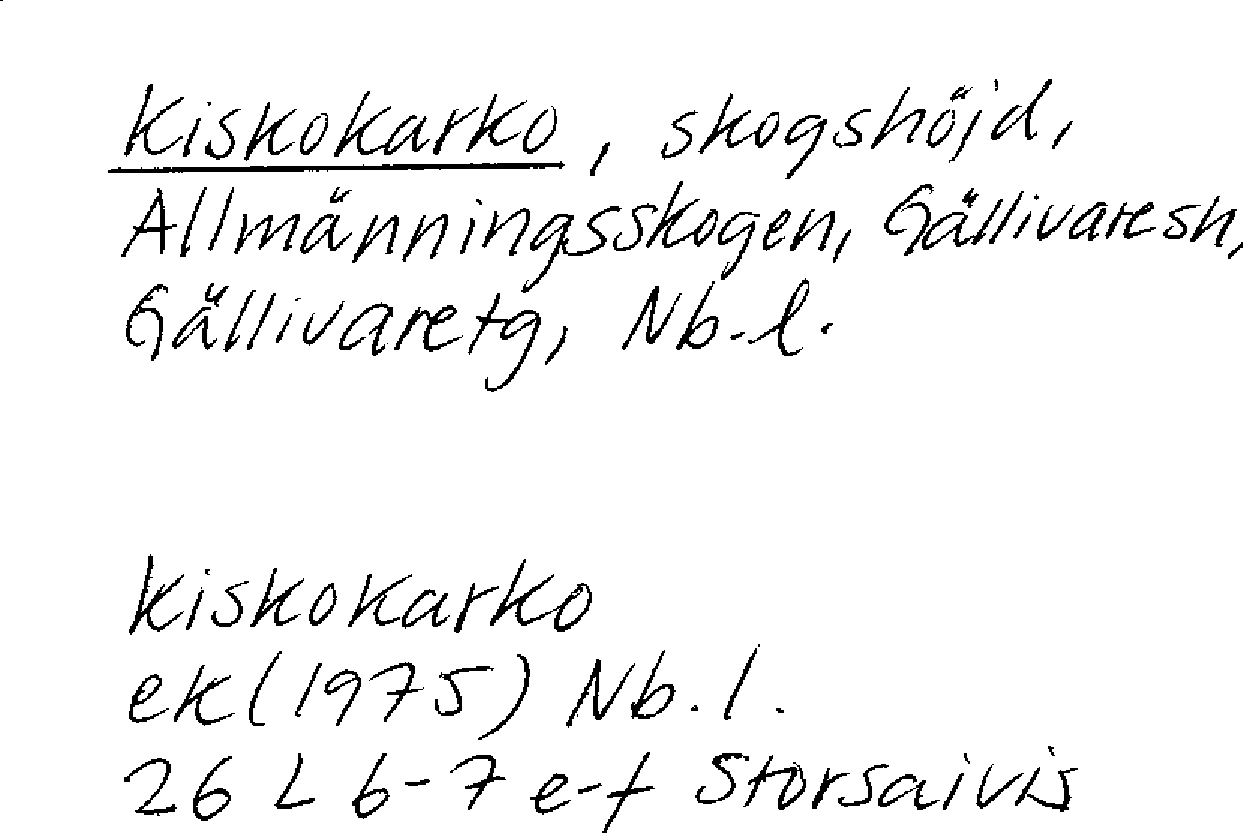 Kiskokarko, skogshöjd,
Allmänningsskogen, Gällivaresn,
Gällivaretg, Nb.l.
Kiskokarko
ek (1975) Nb.l.
26 L 6-7 e-f Storsaivis